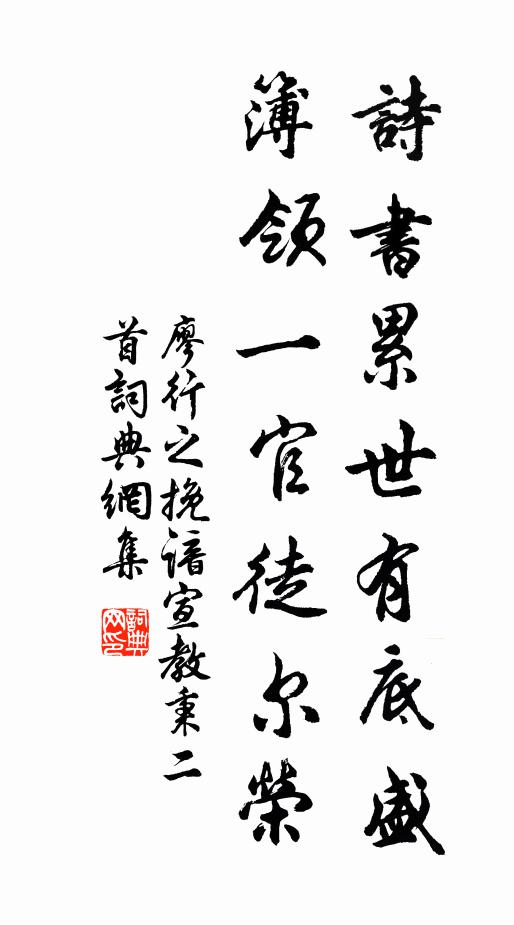 詩書累世有底盛
簿領一官徒尔榮
廖行之挽諳宣教秉二
首詞典網集
詞典
网印